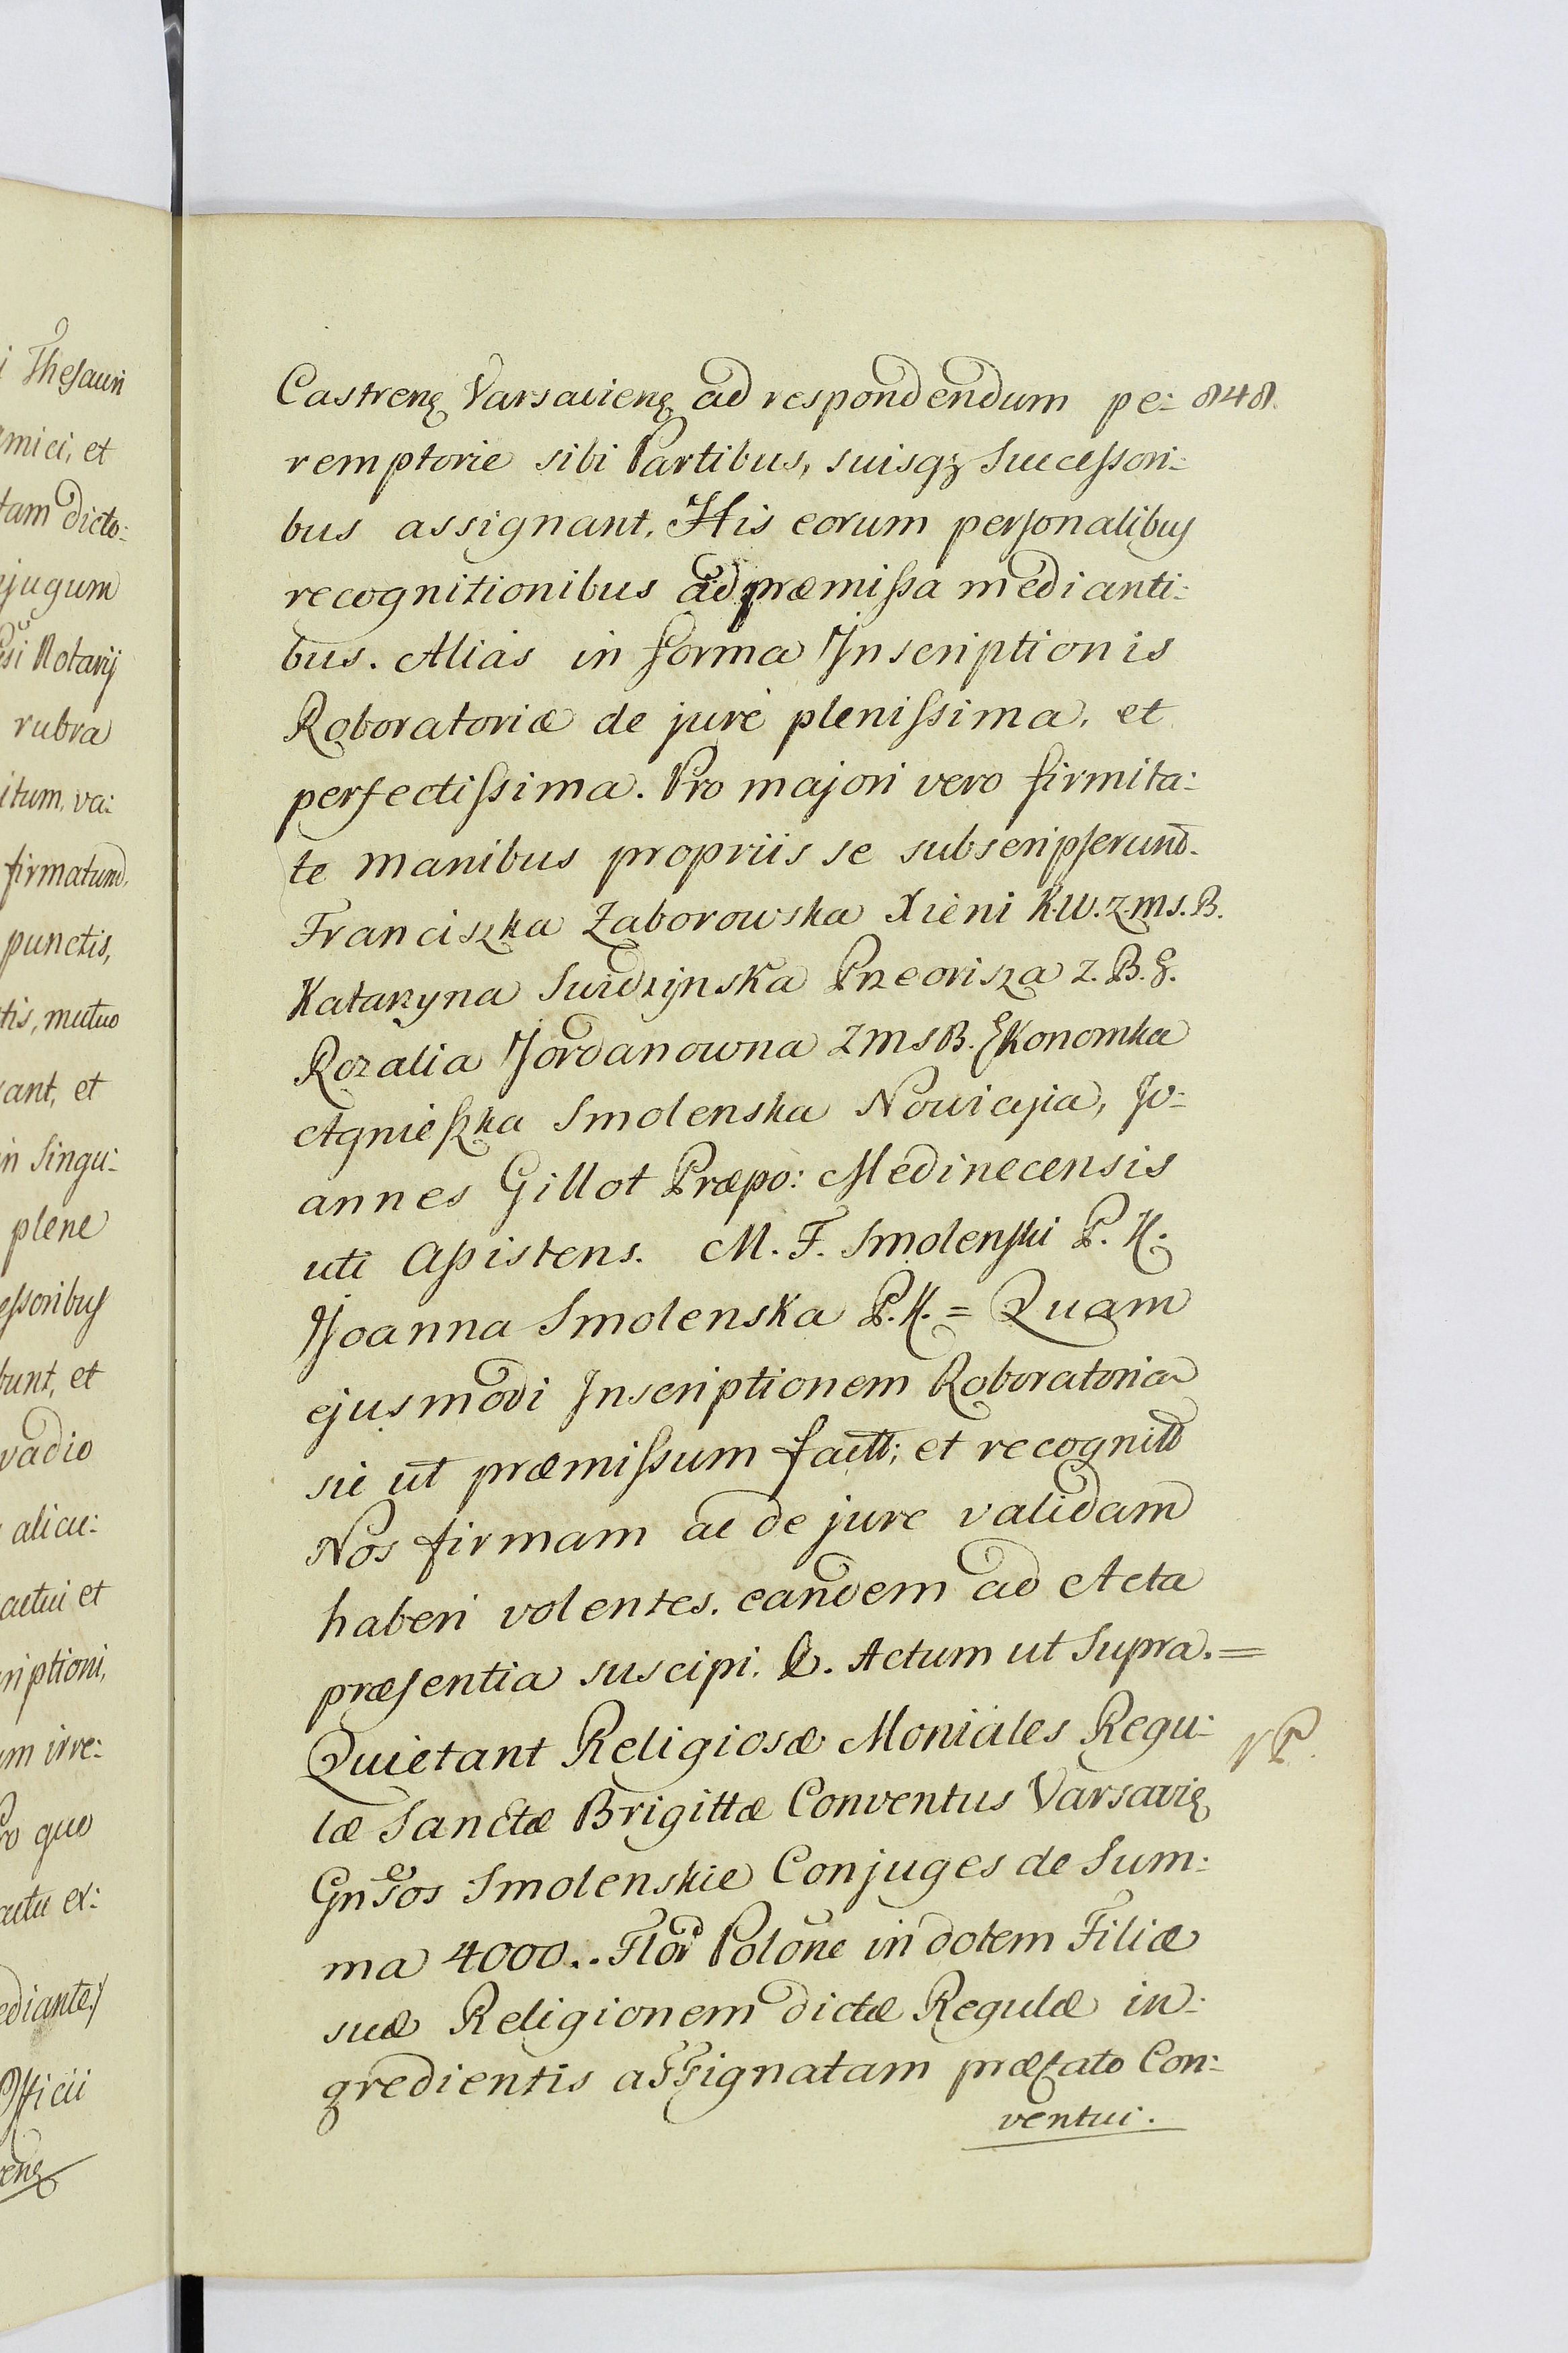 i Thesauri
mici, et
tam dicto:
jugum
si Notarij
rubra
itum, va:
firmatum,
punctis,
tis, mutuo
ant, et
in Singu:
plene
essoribus
bunt, et
vadio
alicu:
actui et
riptioni,
um irre:
Pro quo
actu ex:
ediante
Officii
Castrenę Varsavienę ad respondendum pe: 848.
remptorie sibi Partibus, suisqz Successori:
bus assignant. His eorum personalibus
recognitionibus ad præmissa medianti:
bus. Alias in forma Inscriptionis
Roboratoriæ de jure plenissima, et
perfectissima. Pro majori vero firmita:
te manibus propriis se subscripserund.
Franciszka Zaborowska Xieni K.W.Z.M.S.B.
Katarzyna Swidzijnska Przeorisza Z.B.S.
Rozalia Jordanowna ZMSB. Ekonomka
Agnieszka Smolenska Nowicyia, Jo:
annes Gillot Præpo: Medinecensis
uti Assistens. M. F. Smolenski P. K.
Joanna Smolenska P.K. = Quam
ejusmodi Inscriptionem Roboratoria
sic ut præmissum factt; et recognitt
Nos firmam ac de jure validam
haberi volentes. eandem ad Acta
præsentia suscipi. &. Actum ut Supra. =
Quietant Religiosæ Moniales Regu:
læ Sanctæ Brigittæ Conventus Varsavię
Gnsos Smolenskie Conjuges de Sum:
ma 4000.. Flor Polone in dotem Filiæ
suæ Religionem dictæ Regulæ in:
gredientis assignatam præfato Con:
ventui.